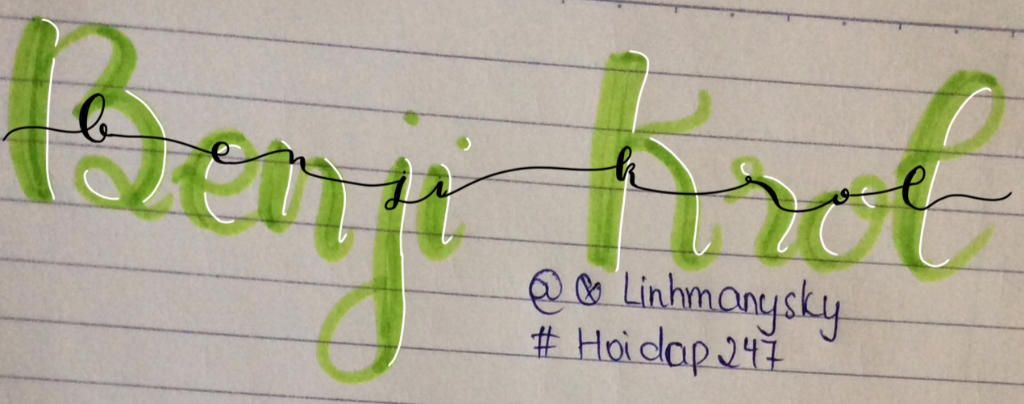 Benji Krol
benji krol
@ Linhmanysky
# Hoidap 247